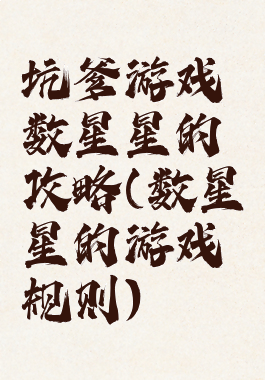 坑爹游戏
数星星的
攻略(数星
星的游戏
规则)